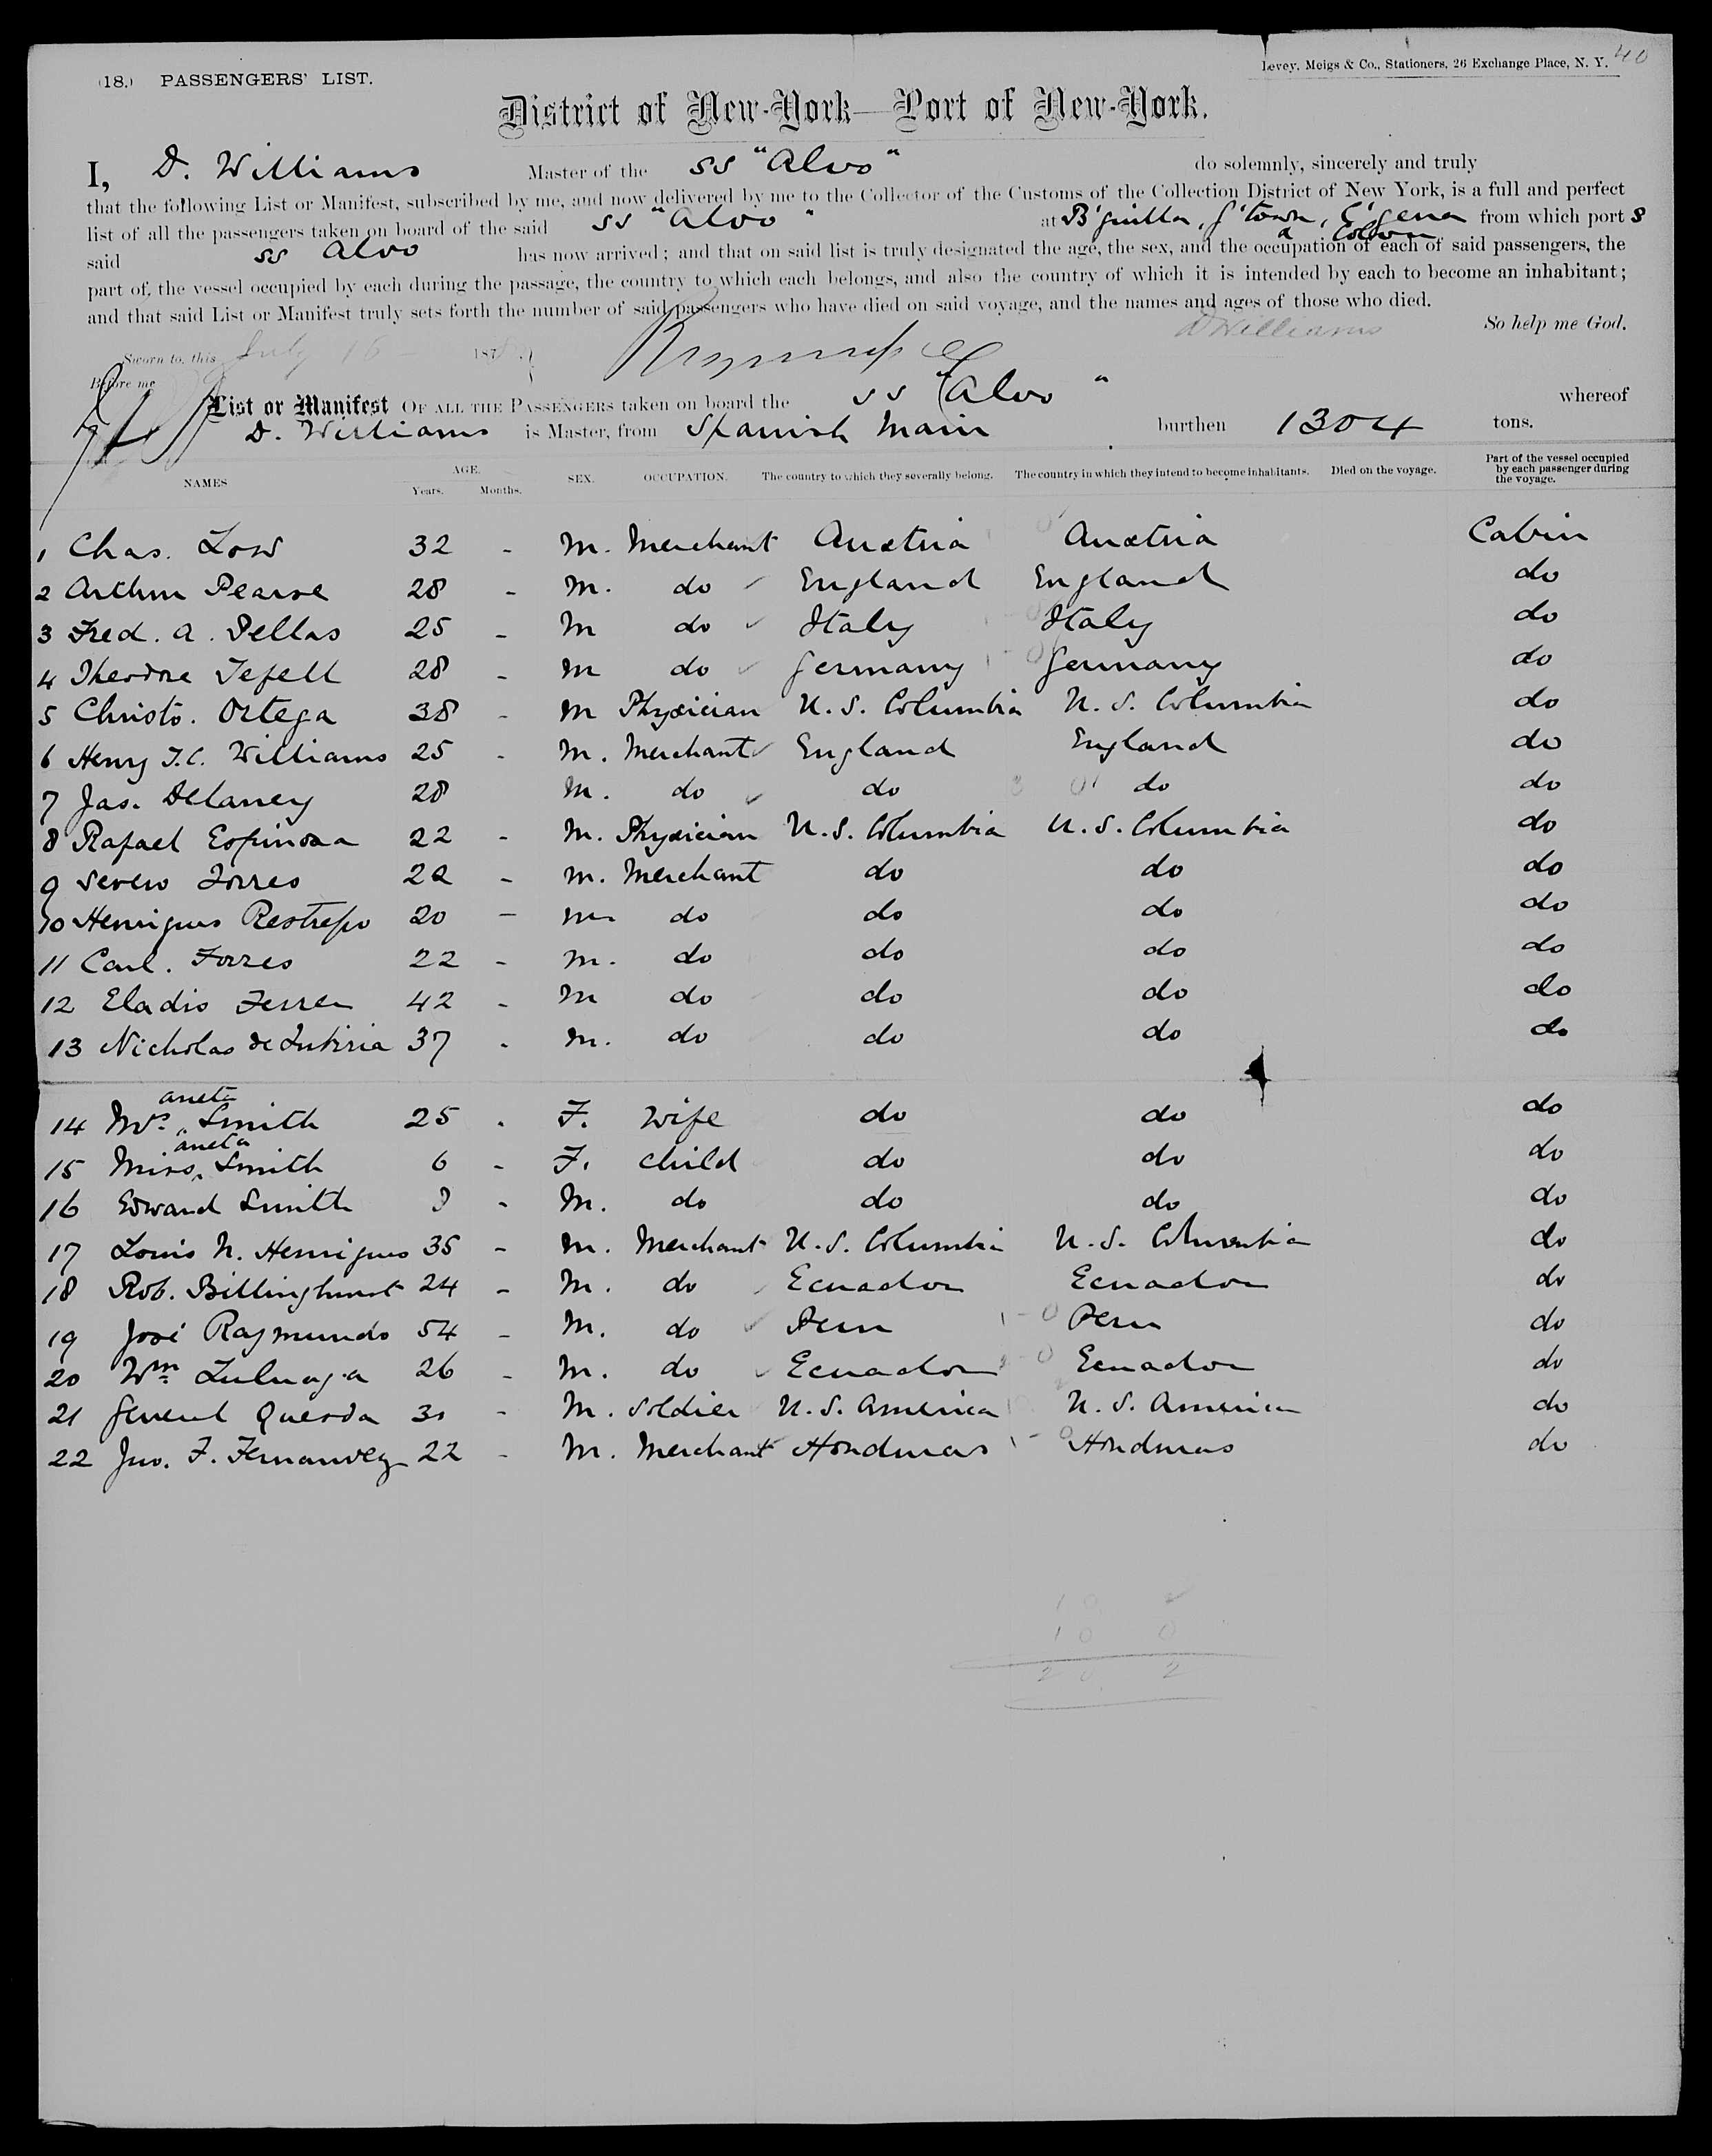 (18.) PASSENGERS' LIST.
Levey, Meigs & Co., Stationers, 26 Exchange Place, N. Y. 40
District of New-York—Port of New-York.
I, D. Williams Master of the SS "Alvo" do solemnly, sincerely and truly
that the following List or Manifest, subscribed by me, and now delivered by me to the Collector of the Customs of the Collection District of New York, is a full and perfect
list of all the passengers taken on board of the said SS "Alvo" at B'quilla, G'town, C'gena & Colon from which port s
said SS Alvo has now arrived; and that on said list is truly designated the age, the sex, and the occupation of each of said passengers, the
part of the vessel occupied by each during the passage, the country to which each belongs, and also the country of which it is intended by each to become an inhabitant;
and that said List or Manifest truly sets forth the number of said passengers who have died on said voyage, and the names and ages of those who died.
DWilliams So help me God.
Sworn to, this July 16 187
Before me
List or Manifest OF ALL THE PASSENGERS taken on board the SS "Alvo" whereof
D. Williams is Master, from Spanish Main burthen 1304 tons.
NAMES AGE. Years. Months. SEX. OCCUPATION. The country to which they severally belong. The country in which they intend to become inhabitants. Died on the voyage. Part of the vessel occupied by each passenger during the voyage.
1 Chas. Low 32 - M. Merchant Austria Austria Cabin
2 Arthur Pearse 28 - M. do England England do
3 Fred. A. Dellas 25 - M do Italy Italy do
4 Theodore Tefell 28 - M do Germany Germany do
5 Christo. Ortega 38 - M Physician U.S. Columbia U.S. Columbia do
6 Henry J.C. Williams 25 - M. Merchant England England do
7 Jas. Delaney 28 M. do do do do
8 Rafael Espinosa 22 - M. Physician U.S. Columbia U.S. Columbia do
9 Severo Torres 22 - M. Merchant do do do
10 Henriques Restrepo 20 - M do do do do
11 Carl. Torres 22 - M. do do do do
12 Eladio Ferrer 42 - M do do do do
13 Nicholas de 37 - M. do do do do
14 Mrs. Aneta Smith 25 - F. Wife do do do
15 Miss Aneta Smith 6 - F. Child do do do
16 Edward Smith - M. do do do do
17 Louis N. Henriques 35 - M. Merchant U.S. Columbia U.S. Columbia do
18 Rob. Billinghurst 24 - M. do Ecuador Ecuador do
19 José Raymundo 54 - M. do Peru Peru do
20 Wm Zuluaga 26 - M. do Ecuador Ecuador do
21 General Quesda 31 - M. Soldier U.S. America U.S. America do
22 Jno. F. Fernandez 22 - M. Merchant Honduras Honduras do
10
10 0
20 2